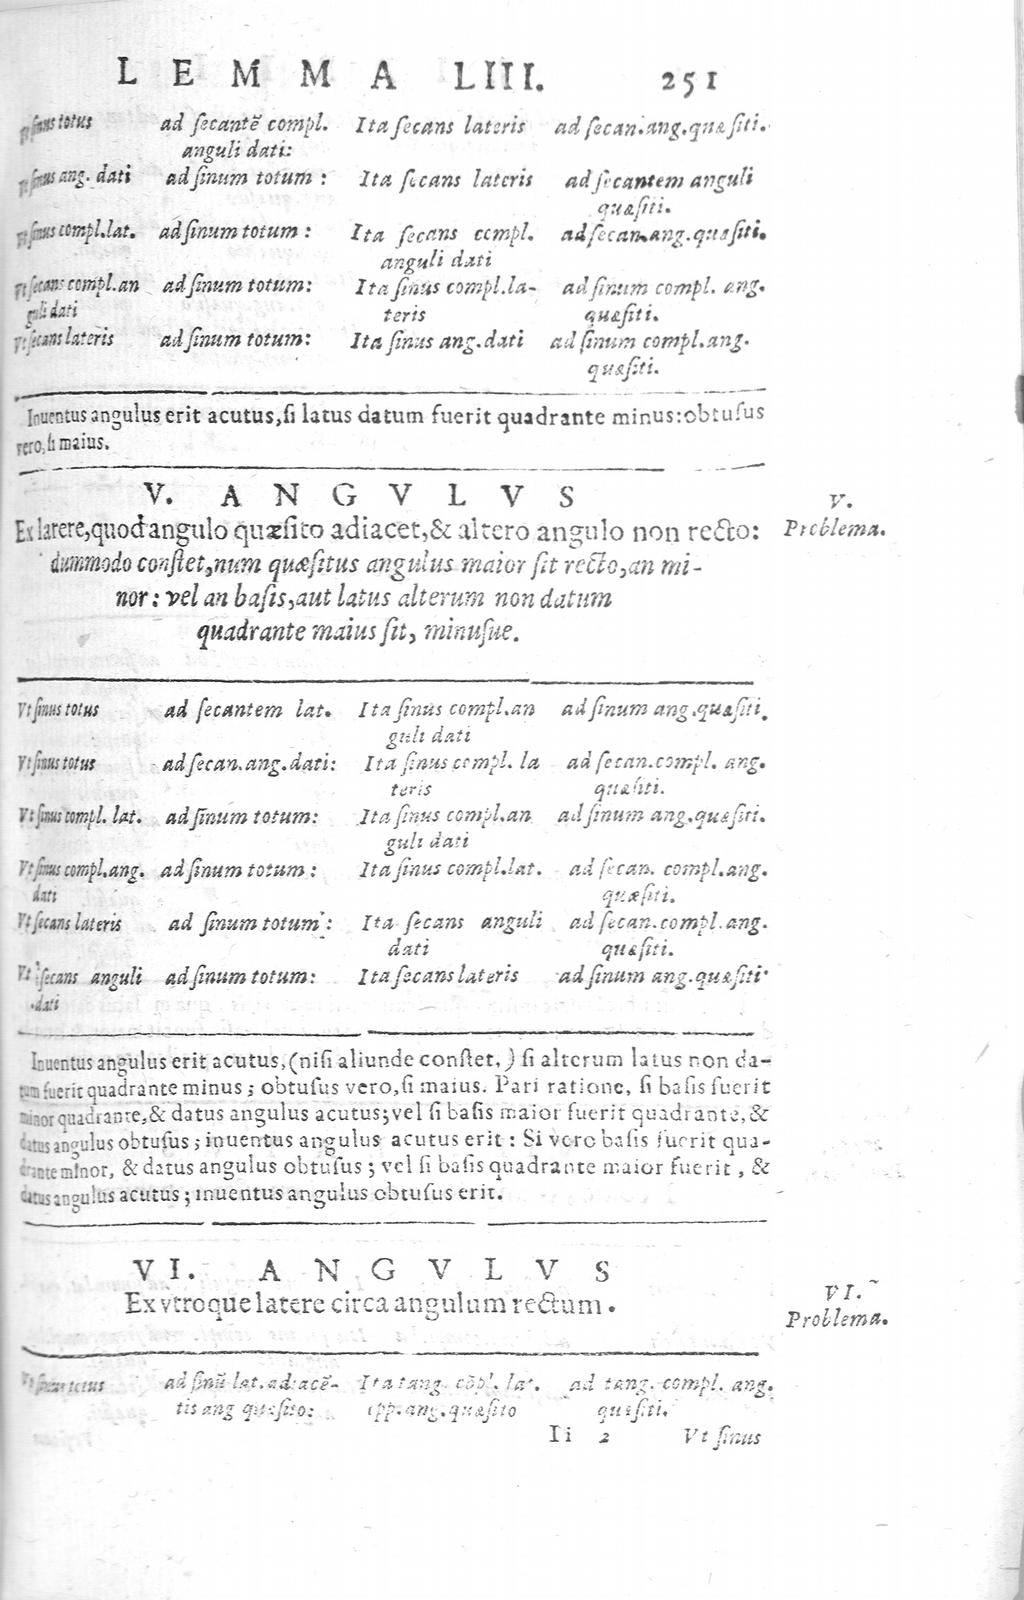 LEMMA LIII. 251
Vt sinus totus ad secantẽ compl. Ita secans lateris ad secan.ang.quæsiti.
anguli dati:
Vt sinus ang. dati ad sinum totum: Ita secans lateris ad secantem anguli
quæsiti.
Vt sinus compl.lat. ad sinum totum: Ita secans compl. ad secan.ang.quæsiti.
anguli dati
Vt secans compl.an ad sinum totum: Ita sinus compl.la- ad sinum compl. ang.
guli dati teris quæsiti.
Vt secans lateris ad sinum totum: Ita sinus ang.dati ad sinum compl.ang.
quæsiti.
Inuentus angulus erit acutus, si latus datum fuerit quadrante minus: obtusus
vero, si maius.
V. ANGVLVS
V.
Ex latere, quod angulo quæsito adiacet, & altero angulo non recto:
Problema.
dummodo constet, num quæsitus angulus maior sit recto, an mi-
nor: vel an basis, aut latus alterum non datum
quadrante maius sit, minusue.
Vt sinus totus ad secantem lat. Ita sinus compl.an ad sinum ang.quæsiti.
guli dati
Vt sinus totus ad secan.ang.dati: Ita sinus compl. la ad secan.compl. ang.
teris quæsiti.
Vt sinus compl. lat. ad sinum totum: Ita sinus compl.an ad sinum ang.quæsiti.
guli dati
Vt sinus compl.ang. ad sinum totum: Ita sinus compl.lat. ad secan. compl.ang.
dati quæsiti.
Vt secans lateris ad sinum totum: Ita secans anguli ad secan.compl.ang.
dati quæsiti.
Vt secans anguli ad sinum totum: Ita secans lateris ad sinum ang.quæsiti
dati
Inuentus angulus erit acutus, (nisi aliunde constet,) si alterum latus non da-
tum fuerit quadrante minus; obtusus vero, si maius. Pari ratione, si basis fuerit
minor quadrante, & datus angulus acutus; vel si basis maior fuerit quadrante, &
datus angulus obtusus; inuentus angulus acutus erit: Si vero basis fuerit qua-
drante minor, & datus angulus obtusus; vel si basis quadrante maior fuerit, &
datus angulus acutus; inuentus angulus obtusus erit.
VI. ANGVLVS
VI.
Ex vtroque latere circa angulum rectum.
Problema.
Vt sinus totus ad sinũ lat.adiacẽ- Ita tang. cõpl. lat. ad tang. compl. ang.
tis ang quæsito: opp.ang.quæsito quæsiti.
Ii 2 Vt sinus